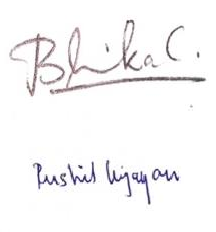 Bhika C.
Rushil Vijayan